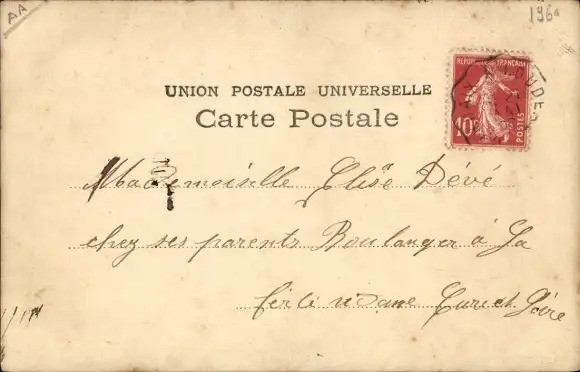 AA
196a
UNION POSTALE UNIVERSELLE
Carte Postale
RÉPUBLIQUE FRANÇAISE
10c
POSTES
LOUDE
Mademoiselle Elise Dévé
chez ses parents Boulanger à La
ferté vidame Eure et Loire